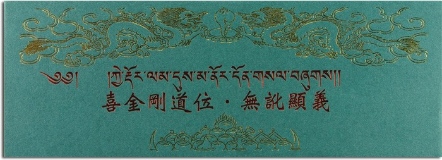 ༄༅། །ཀྱེ་རྡོར་ལམ་དུས་མ་ནོར་དོན་གསལ་བཞུགས།།
喜金剛道位·無訛顯義